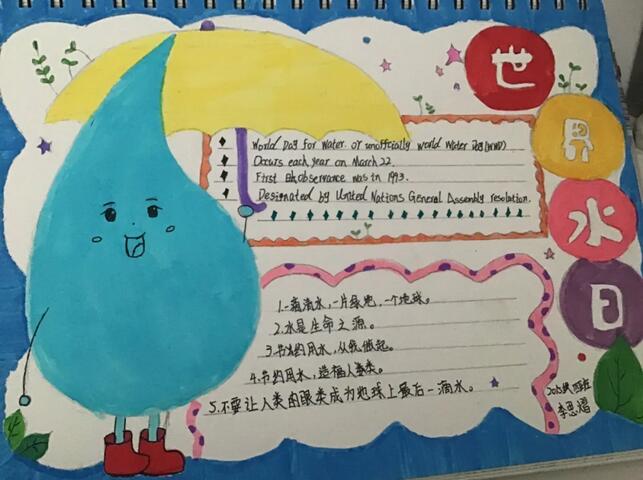 世界水日
World Day for Water. or unofficially World Water Day(WWD)
Occurs each year on March 22.
First observance was in 1993.
Designated by United Nations General Assembly resolution.
1.一滴清水，一片绿地，一个地球。
2.水是生命之源。
3.节约用水，从我做起。
4.节约用水，造福人类。
5.不要让人类的眼泪成为地球上最后一滴水。
李思熠